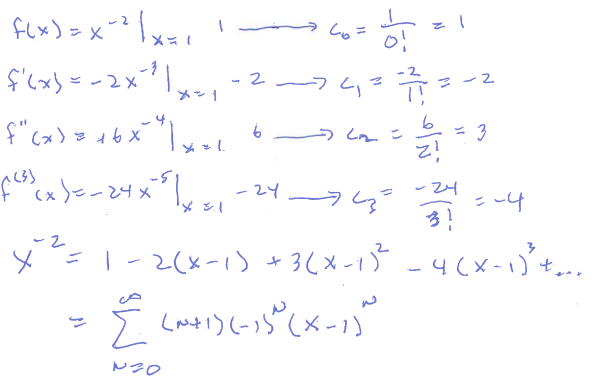 f(x) = x^-2 |x=1 1 → c0 = 1/0! = 1
f'(x) = -2x^-3 |x=1 -2 → c1 = -2/1! = -2
f''(x) = +6x^-4 |x=1 6 → c2 = 6/2! = 3
f^(3)(x) = -24x^-5 |x=1 -24 → c3 = -24/3! = -4
x^-2 = 1 - 2(x-1) + 3(x-1)^2 - 4(x-1)^3 + ...
= ∑ n=0 ^∞ (n+1)(-1)^n (x-1)^n